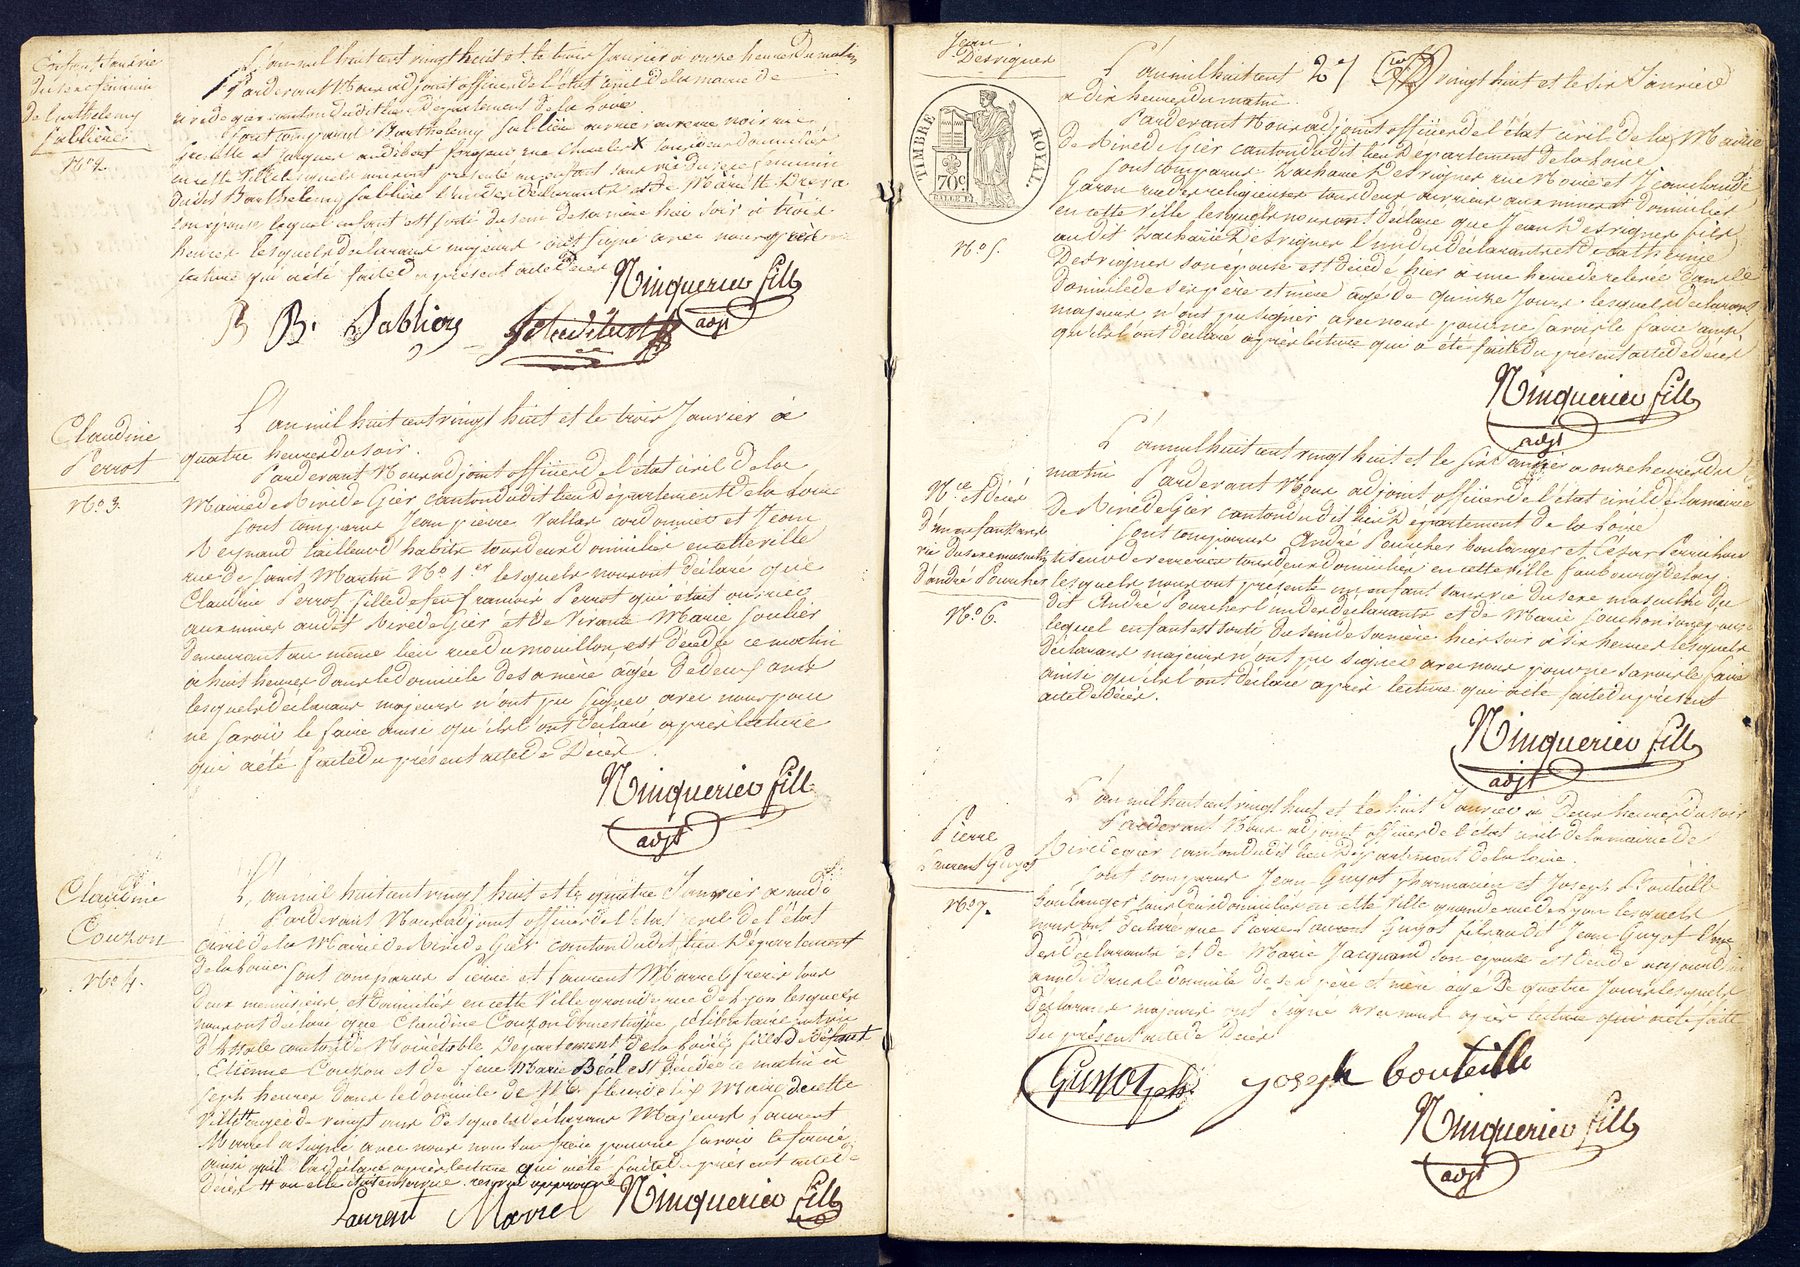 Enfant sans vie
du sexe féminin
de Barthelemy
Sablière
No. 2.
L'an mil huit cent vingt huit et le trois Janvier à onze heures du matin
Pardevant Nous adjoint officier de l'état civil de la mairie de
rivedegier canton dudit lieu Département de la Loire
Sont comparus Barthelemy Sablière
et Jacques audibert
en cette Ville lesquels nous ont présenté un enfant sans vie du sexe féminin
dudit Barthelemy Sablière l'un des déclarants et de Mariette
son épouse lequel enfant est sorti du sein de sa mère hier soir à trois
heures lesquels déclarans majeurs ont signé avec nous après
lecture qui a été faite du présent acte de décès
Ninquerier fils
adjt
B B. Sabliere
Claudine
Perrot
No. 3.
L'an mil huit cent vingt huit et le trois Janvier à
quatre heures du soir.
Pardevant Nous adjoint officier de l'état civil de la
Mairie de Rive de Gier canton dudit lieu Département de la Loire
Sont comparus Jean pierre Vallas cordonnier et Jean
Reynaud tailleur d'habits tous deux domiciliés en cette ville
rue de saint Martin No. 1er lesquels nous ont déclaré que
Claudine Perrot fille de feu françois Perrot qui était ouvrier
aux mines audit Rive de Gier et de Vivante Marie Soulier
demeurant au même lieu rue du mouillon, est décédée ce matin
à huit heures dans le domicile de sa mère agée de deux ans
lesquels déclarans majeurs n'ont pu signer avec nous pour
ne savoir le faire ainsi qu'ils l'ont déclaré après lecture
qui a été faite du présent acte de Décès
Ninquerier fils
adjt
Claudine
Couzon
No. 4.
L'an mil huit cent vingt huit et le quatre Janvier à midi
Pardevant Nous adjoint officier de l'état civil de l'état
civil de la Mairie de Rive de Gier canton dudit lieu Département
de la Loire Sont comparus Pierre et Laurent Marrel frères tous
deux menuisiers et domiciliés en cette Ville grande rue de Lyon lesquels
nous ont déclaré que Claudine Couzon Domestique, célibataire native
canton de Noirétable Département de la Loire fille de défunt
Etienne Couzon et de feue Marie Béal est décédée ce matin à
sept heures dans le domicile de M. fleurdelix Maire de cette
Ville agée de vingt ans Desquels déclarans Majeurs Laurent
Marrel a signé avec nous non son frère pour ne savoir le faire
ainsi qu'il l'a déclaré après lecture qui a été faite du présent acte de
décès
Laurent Marrel Ninquerier fils
2e/
Jean
Desvignes
TIMBRE ROYAL.
70c
No. 5.
L'an mil huit cent vingt huit et le six Janvier
à dix heures du matin.
Pardevant Nous adjoint officier de l'état civil de la Mairie
De Rive de Gier canton dudit lieu Département de la Loire
Sont comparus Zacharie Desvignes rue Noire et Jean claude
Garon rue des religieuses tous deux ouvriers aux mines et domiciliés
en cette Ville lesquels nous ont déclaré que Jean Desvignes fils
audit Zacharie Desvignes l'un des déclarants et de catherine
Desvignes son épouse est décédé hier à une heure de relevée dans le
domicile de ses père et mère agé de quinze Jours. lesquels déclarans
majeurs n'ont pu signer avec nous pour ne savoir le faire ainsi
qu'ils l'ont déclaré après lecture qui a été faite du présent acte de décès
Ninquerier fils
adjt
Nce. et décès
d'un enfant sans
vie du sexe masculin
d'andré Pourcher
No. 6.
L'an mil huit cent vingt huit et le six Janvier à onze heures du
matin Pardevant Nous adjoint officier de l'état civil de la mairie
De Rive de Gier canton dudit lieu Département de la Loire
Sont comparus André Pourcher boulanger et César Perrichon
tiseur de verrerie tous deux domiciliés en cette ville faubourg de Lay
lesquels nous ont présenté un enfant sans vie du sexe masculin du
dit André Pourcher l'un des déclarants et de Marie Souchon
lequel enfant est sorti du sein de sa mère hier soir à six heures lesquels
déclarans majeurs n'ont pu signer avec nous pour ne savoir le faire
ainsi qu'ils l'ont déclaré après lecture qui a été faite du présent
acte de Décès.
Ninquerier fils
adjt
Pierre
Laurent Guyot
No. 7.
L'an mil huit cent vingt huit et le huit Janvier à Deux heures du soir
Pardevant Nous adjoint officier de l'état civil de la mairie de
Rive de gier canton dudit lieu Département de la Loire.
Sont comparus Jean Guyot pharmacien et Joseph Bouteille
boulanger tous deux domiciliés en cette Ville grande rue de Lyon lesquels
nous ont déclaré que Pierre Laurent Guyot fils audit Jean Guyot l'un
des déclarants et de Marie Jacquand son épouse est décédé aujourd'hui
à midi dans le domicile de ses père et mère agé de quatre Jours lesquels
déclarans majeurs ont signé avec nous après lecture qui a été faite
du présent acte de Décès
Guyot ph. Joseph bouteille
Ninquerier fils
adjt